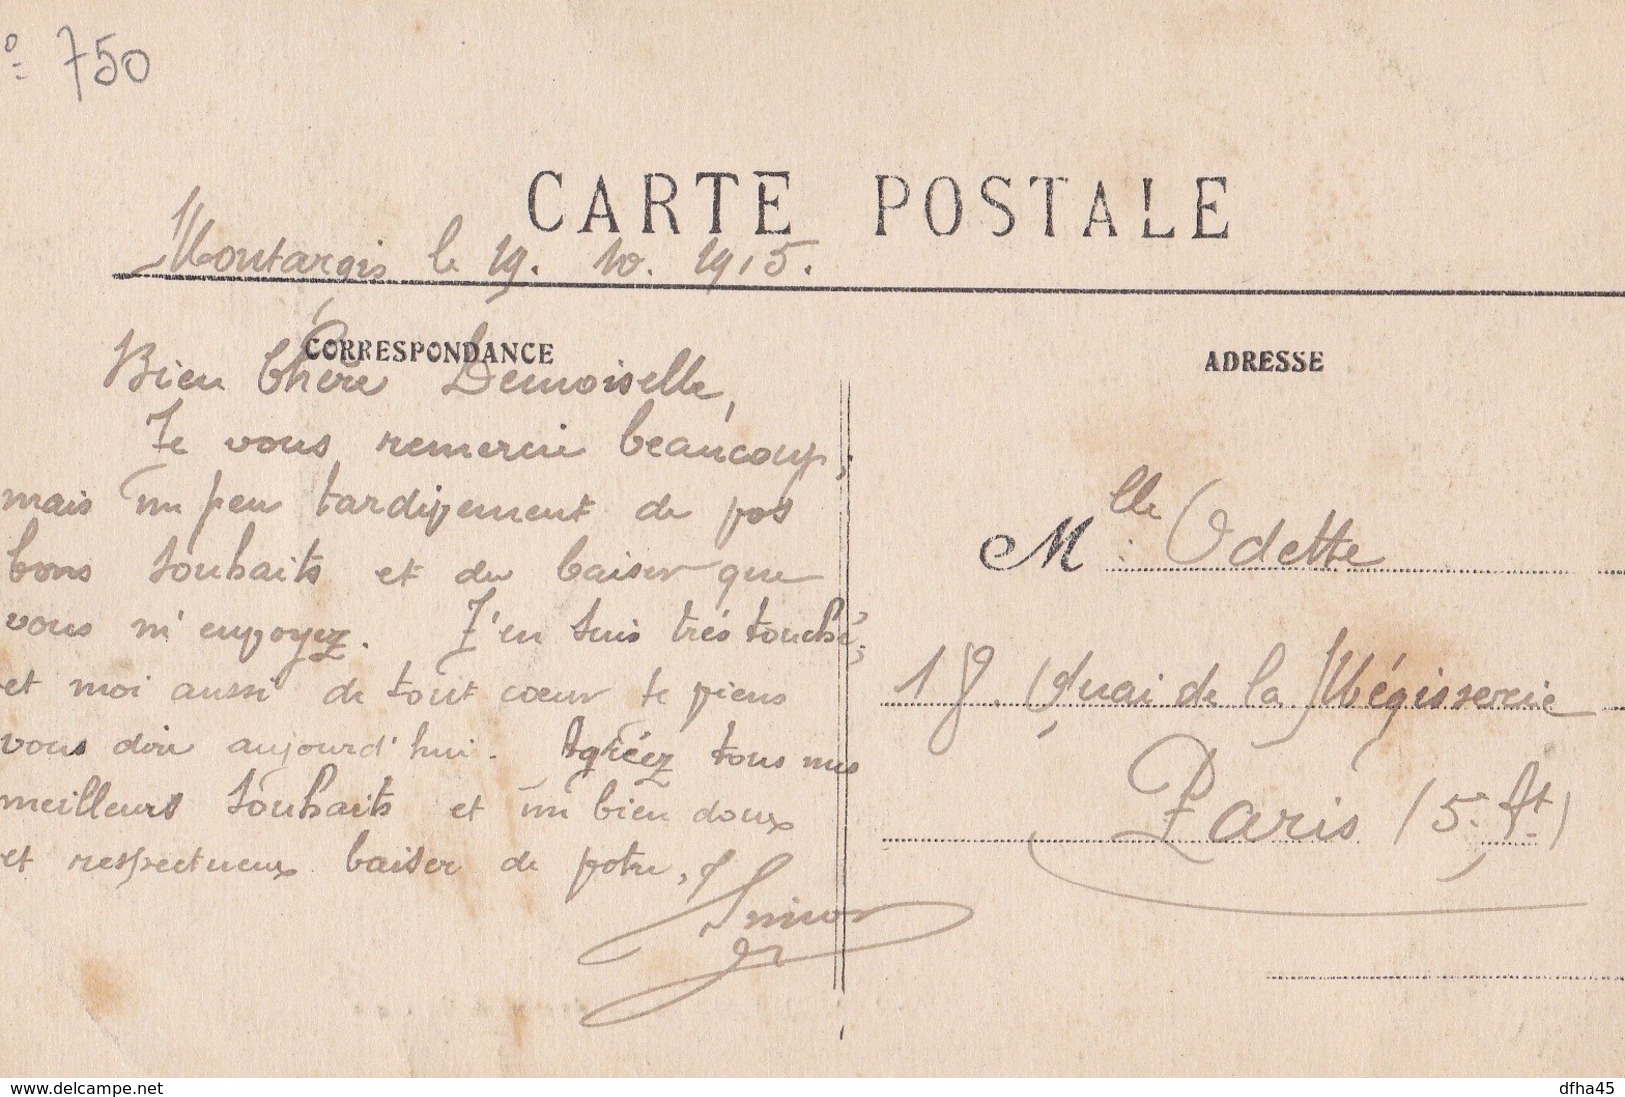 750
CARTE POSTALE
Montargis le 19. 10. 1915.
CORRESPONDANCE
ADRESSE
Bien Chère Demoiselle,
Je vous remercie beaucoup,
mais un peu tardivement de vos
bons souhaits et du baiser que
vous m'envoyez. J'en suis très touché,
et moi aussi de tout cœur je viens
vous dire aujourd'hui. Agréez tous mes
meilleurs souhaits et un bien doux
et respectueux baiser de votre,
Mlle Odette
18. Quai de la Mégisserie
Paris (5e At)
www.delcampe.net
dfha45